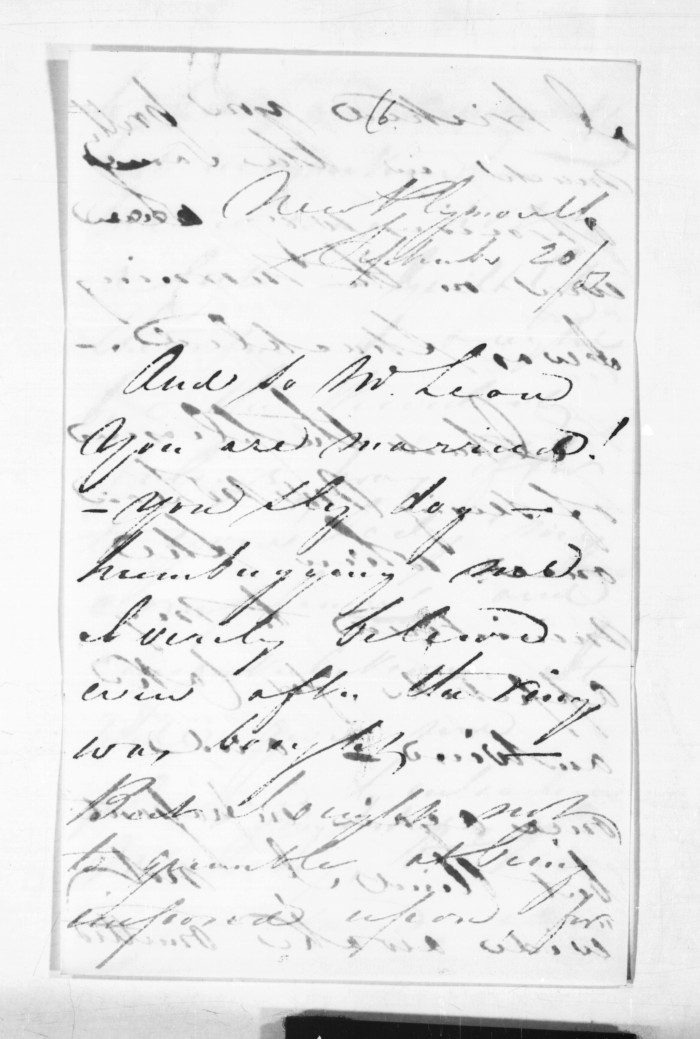 16.
New Plymouth.
September 20/
And so Mr. Lean
You are married!
- you sly dog -
humbugging me
I verily believe
even after the ring
was bought, -
But I ought not
to grumble at being
imposed upon for